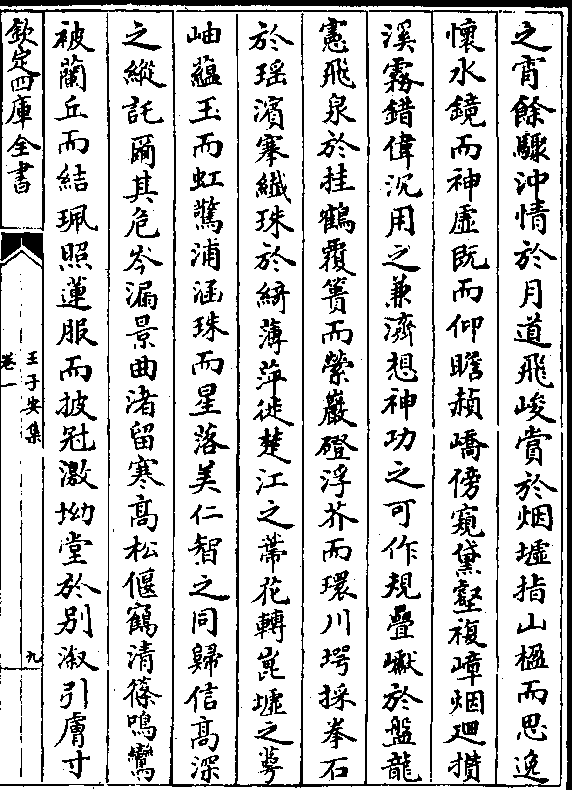 之宵餘驟沖情於月道飛峻賞於烟墟指山楹而思逸
懷水鏡而神虛既而仰瞻赬嶠傍窺黛壑複嶂烟廻攢
溪霧錯偉沉用之兼濟想神功之可作規疊巘於盤龍
憲飛泉於挂鶴覆簣而縈巖磴浮芥而環川堮採拳石
於瑶濱搴纎珠於綺薄萍徙楚江之蔕花轉崑墟之萼
岫蘊玉而虹驚浦涵珠而星落美仁智之同歸信髙深
之縱託爾其危岑漏景曲渚留寒髙松偃鶴清篠鳴鸞
被蘭丘而結珮照蓮服而披冠激坳堂於别溆引膚寸
欽定四庫全書
王子安集
卷一
九